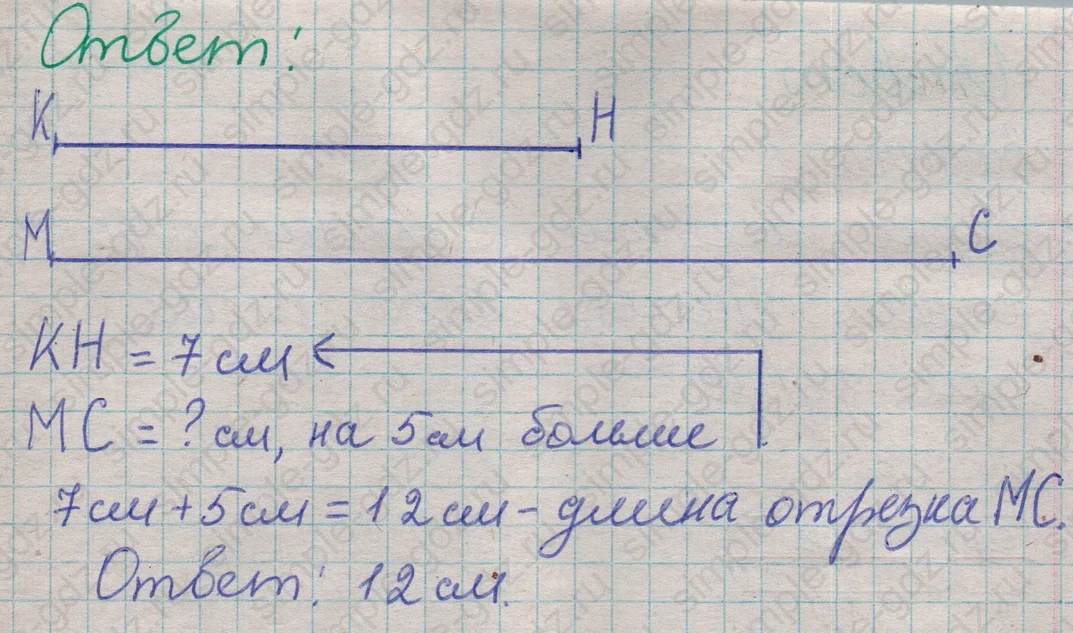 Ответ:
К Н
М С
КН = 7 см
МС = ? см, на 5 см больше
7 см + 5 см = 12 см - длина отрезка МС.
Ответ: 12 см.
simple-gdz.ru